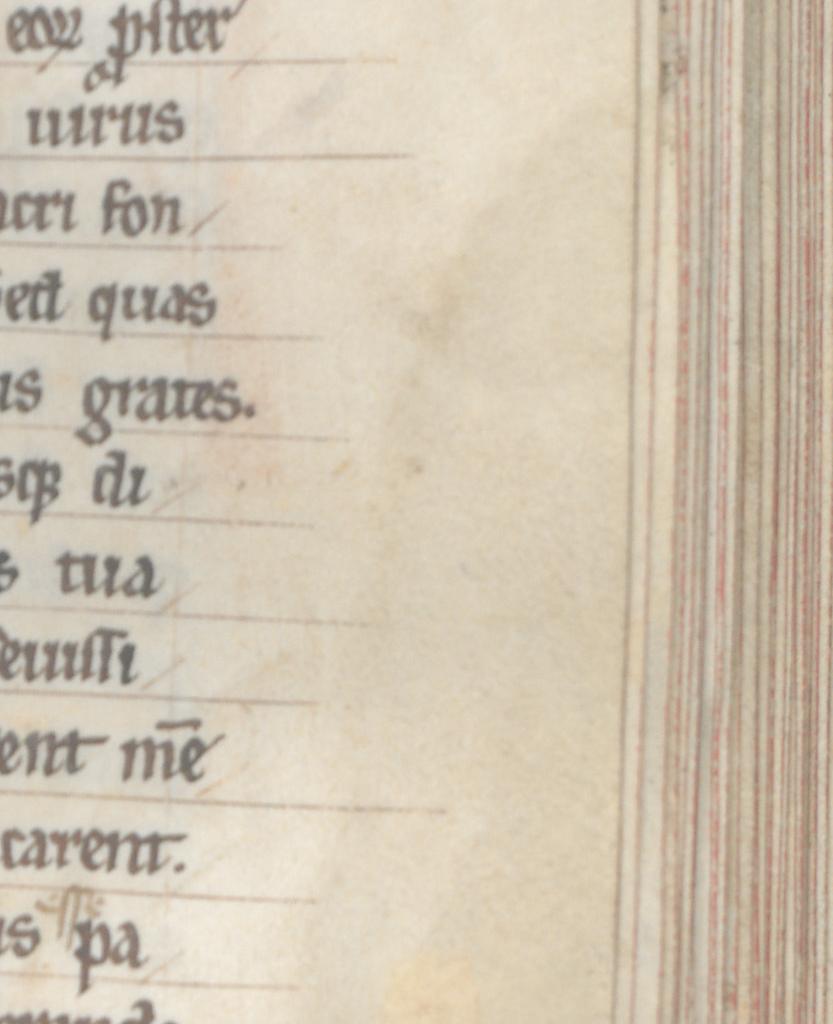 eoꝝ pͥster
uirus
acri fon
sed quas
us grates.
sqꝫ di
s tua
deuissi
ent m̄e
carent.
us pa